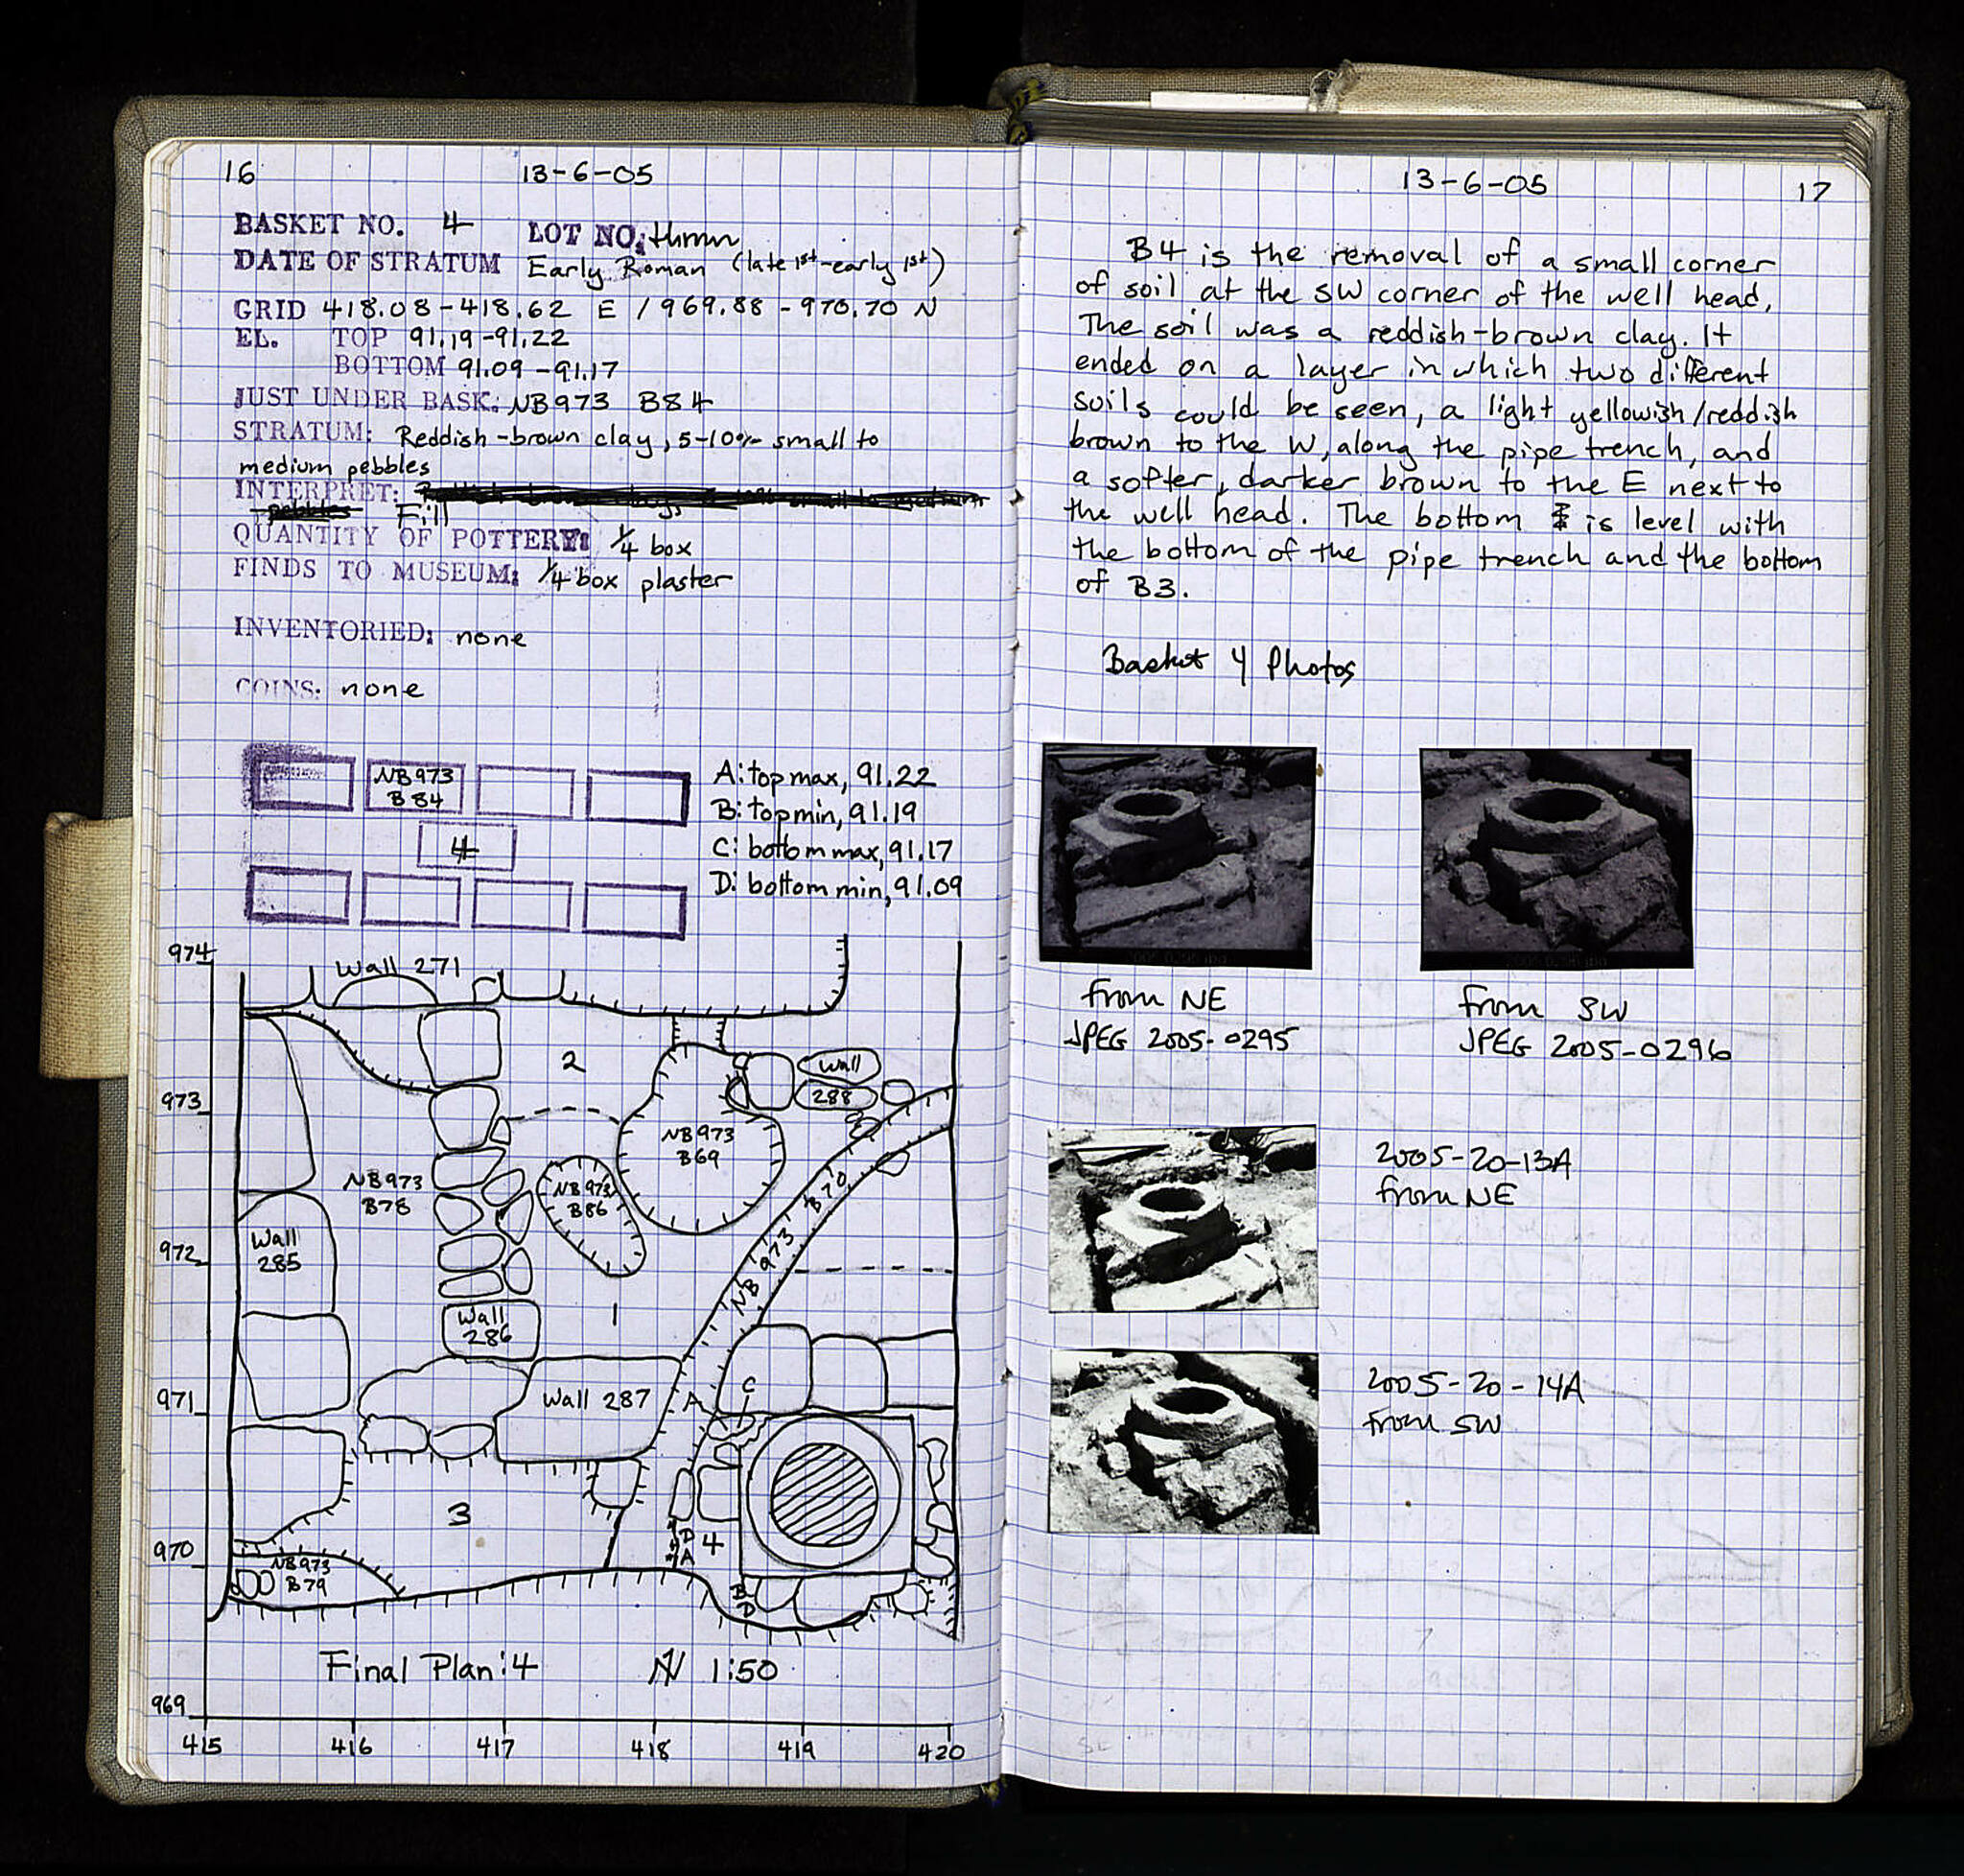 16
13-6-05
BASKET NO. 4 LOT NO:
DATE OF STRATUM Early Roman (late 1st-early 1st)
GRID 418.08-418.62 E / 969.88-970.70 N
EL. TOP 91.19-91.22
BOTTOM 91.09-91.17
JUST UNDER BASK: NB973 B84
STRATUM: Reddish-brown clay, 5-10% small to
medium pebbles
INTERPRET:
Fill
QUANTITY OF POTTERY: 1/4 box
FINDS TO MUSEUM: 1/4 box plaster
INVENTORIED: none
COINS: none
NB973
B84
4
A: top max, 91.22
B: top min, 91.19
C: bottom max, 91.17
D: bottom min, 91.09
974
973
972
971
970
969
Wall 271
2
Wall
288
NB973
B69
NB973
B78
NB973
B86
NB973 B70
Wall
285
Wall
286
1
Wall 287
A
C
3
D
A
4
NB973
B79
B
D
Final Plan: 4 N 1:50
415 416 417 418 419 420
13-6-05
17
B4 is the removal of a small corner
of soil at the SW corner of the well head.
The soil was a reddish-brown clay. It
ended on a layer in which two different
soils could be seen, a light yellowish/reddish
brown to the W, along the pipe trench, and
a softer, darker brown to the E next to
the well head. The bottom is level with
the bottom of the pipe trench and the bottom
of B3.
Basket 4 Photos
from NE
JPEG 2005-0295
from SW
JPEG 2005-0296
2005-20-13A
from NE
2005-20-14A
from SW